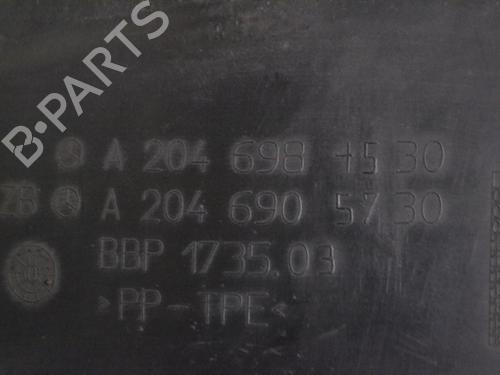 B·PARTS
A 204 698 4530
ZB A 204 690 5730
BBP 1735.03
>PP-TPE<